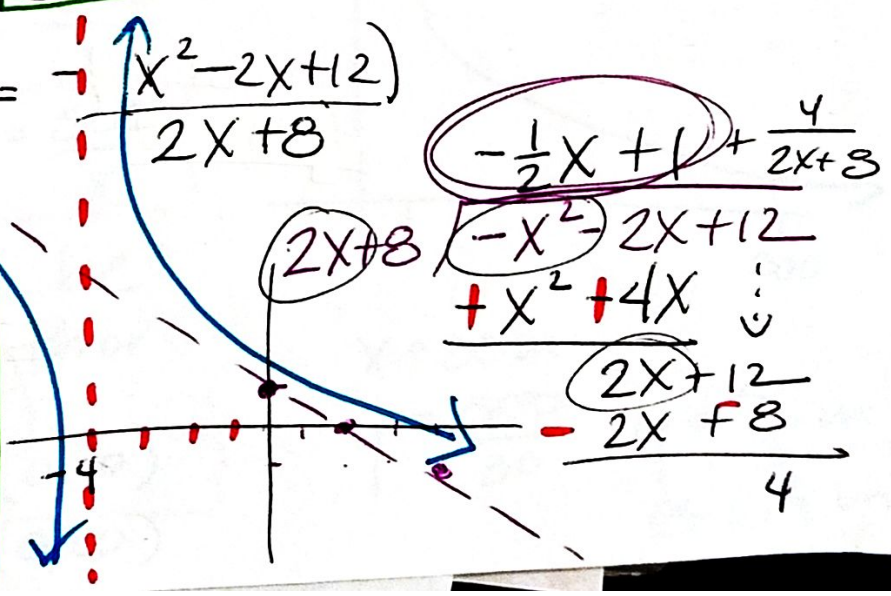 =
x²-2x+12)
2x+8
-½x+1 + 4/(2x+8)
2x+8 -x²-2x+12
+x²+4x
2x+12
- 2x+-8
4
-4